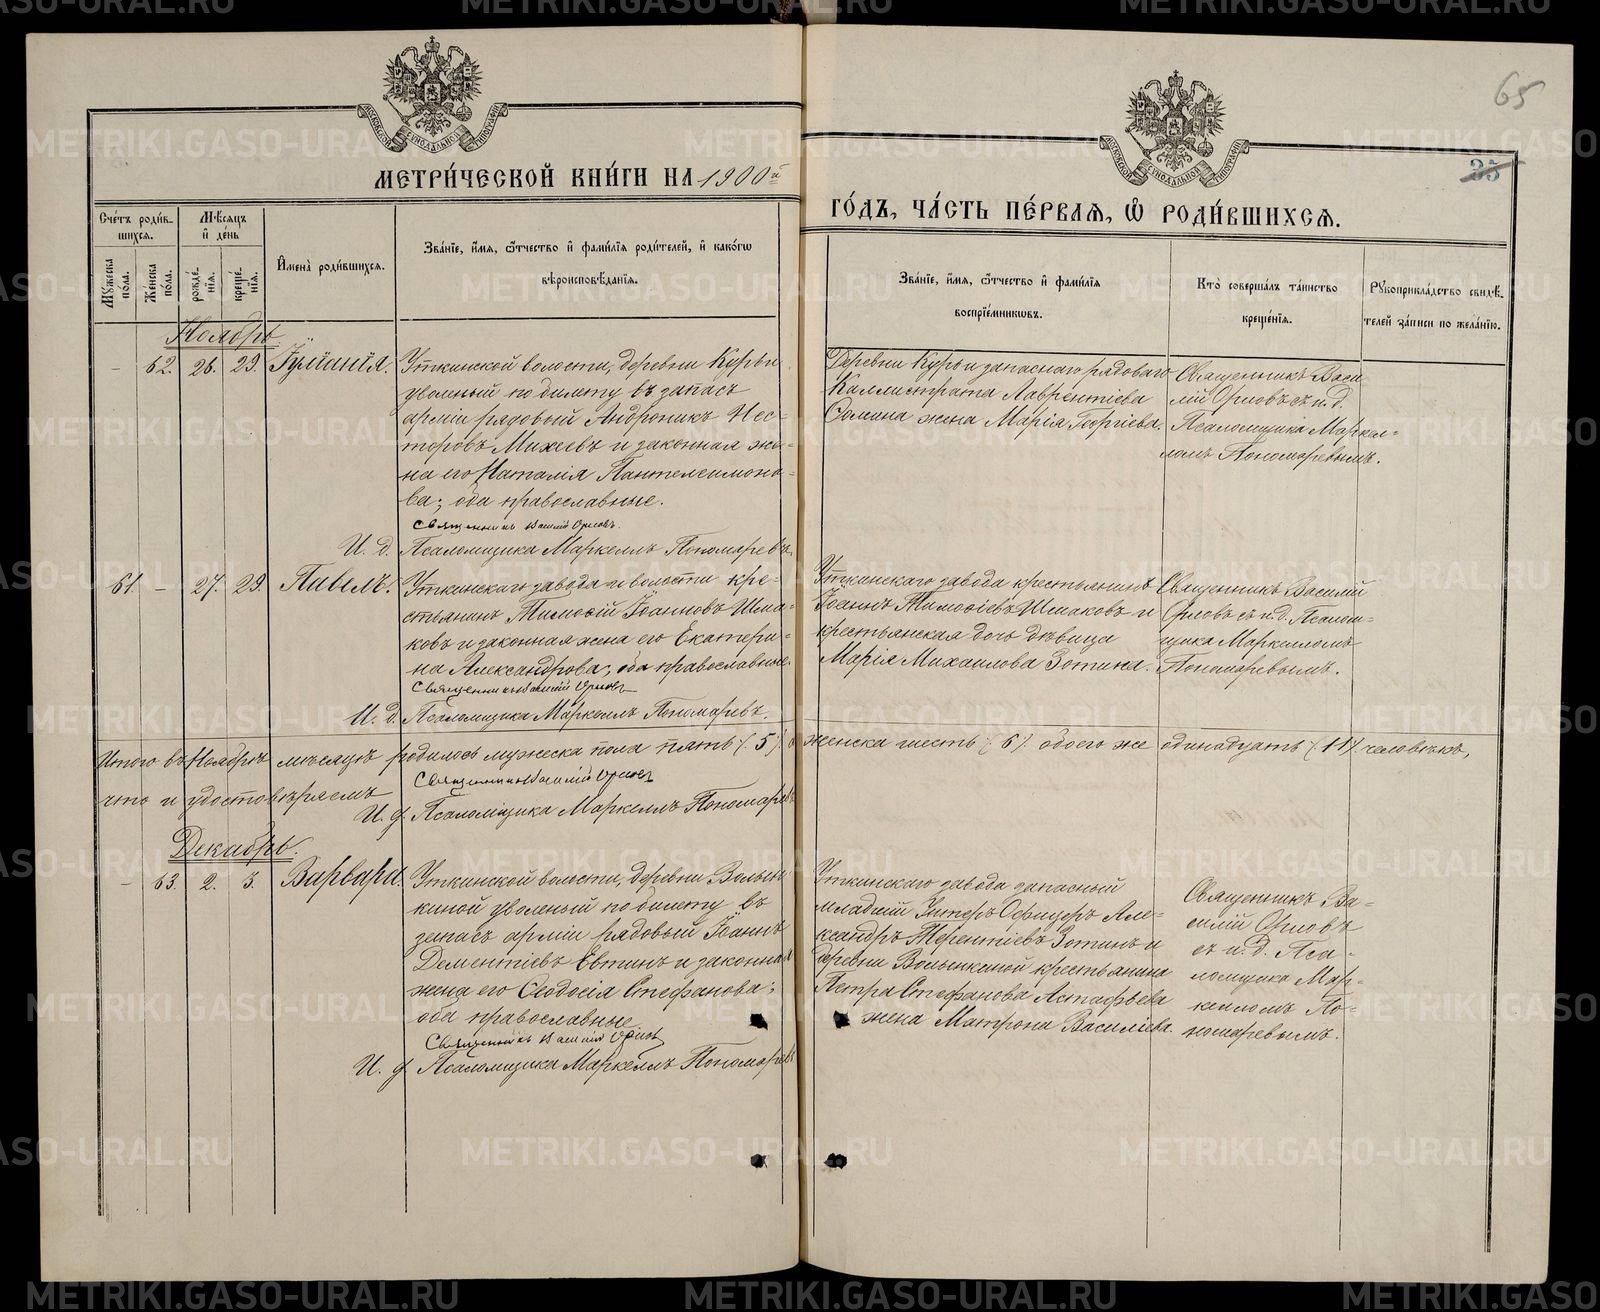 65
35
МОСКОВСКОЙ СѴНОДАЛЬНОЙ ТИПОГРАФІИ
МОСКОВСКОЙ СѴНОДАЛЬНОЙ ТИПОГРАФІИ
МЕТРИ́ЧЕСКОЙ КНИ́ГИ НА 1900й
ГО́ДЪ, ЧА́СТЬ ПЕ́РВАЯ, Ѿ РОДИ́ВШИХСЯ.
Сче́тъ роди́в-
шихся.
Мѣ́сяцъ
и҆ де́нь
Мꙋ́жеска по́ла.
Же́нска по́ла.
рожде́-
нїя.
креще́-
нїя.
И҆мена̀ роди́вшихся.
Зва́нїе, и҆́мя, ѻ҆́тчество и҆ фами́лїя роди́телей, и҆ како́гѡ
вѣроисповѣ́данїя.
Зва́нїе, и҆́мя, ѻ҆́тчество и҆ фами́лїя
воспрїе́мникѡвъ.
Кто̀ соверша́лъ та́инство
креще́нїя.
Рꙋкоприкла́дство свидѣ́-
телей за́писи по жела́нїю.
Ноябрь
– 62. 26. 29. Іуліанія. Уткинской волости, деревни Курьи
уволеный по билету въ запасъ
арміи рядовый Андроникъ Нес-
торовъ Михеевъ и законная же-
на его Наталія Пантелеимоно-
ва; оба православные.
Священникъ Василій Орловъ.
И. д. Псаломщика Маркеллъ Пономаревъ.
Деревни Курьи запаснаго рядоваго
Каллистрата Лаврентіева
Сомина жена Марія Георгіева.
Священникъ Васи-
лій Орловъ съ и. д.
Псаломщика Маркел-
ломъ Пономаревымъ.
61. – 27. 29. Павелъ. Уткинскаго завода и волости кре-
стьянинъ Тимоѳей Іоанновъ Шма-
ковъ и законная жена его Екатери-
на Александрова; оба православные.
Священникъ Василій Орловъ
И. д. Псаломщика Маркеллъ Пономаревъ.
Уткинскаго завода крестьянинъ
Іоаннъ Тимоѳіевъ Шмаковъ и
крестьянская дочь дѣвица
Марія Михаилова Зотина.
Священникъ Василій
Орловъ съ и. д. Псалом-
щика Маркелломъ
Пономаревымъ.
Итого въ Ноябрѣ мѣсяцѣ родилось мужеска пола пять /. 5 /. женска шесть /. 6 /. обоего же одинадцать /. 11 /. человѣкъ,
что и удостовѣряемъ
Священникъ Василій Орловъ
И. д. Псаломщика Маркеллъ Пономаревъ
Декабрь.
– 63. 2. 3. Варвара. Уткинской волости, деревни Волын-
киной уволеный по билету въ
запасъ арміи рядовый Іоаннъ
Дементіевъ Евтинъ и законная
жена его Ѳеодосія Стефанова;
оба православные
Священникъ Василій Орловъ
И. д. Псаломщика Маркеллъ Пономаревъ
Уткинскаго завода запасный
младшій Унтеръ Офицеръ Але-
ксандръ Терентіевъ Зотинъ и
деревни Волынкиной крестьянина
Петра Стефанова Астафьева
жена Матрона Василіева.
Священникъ Ва-
силій Орловъ
съ и. д. Пса-
ломщика Мар-
келломъ По-
номаревымъ.
METRIKI.GASO-URAL.RU